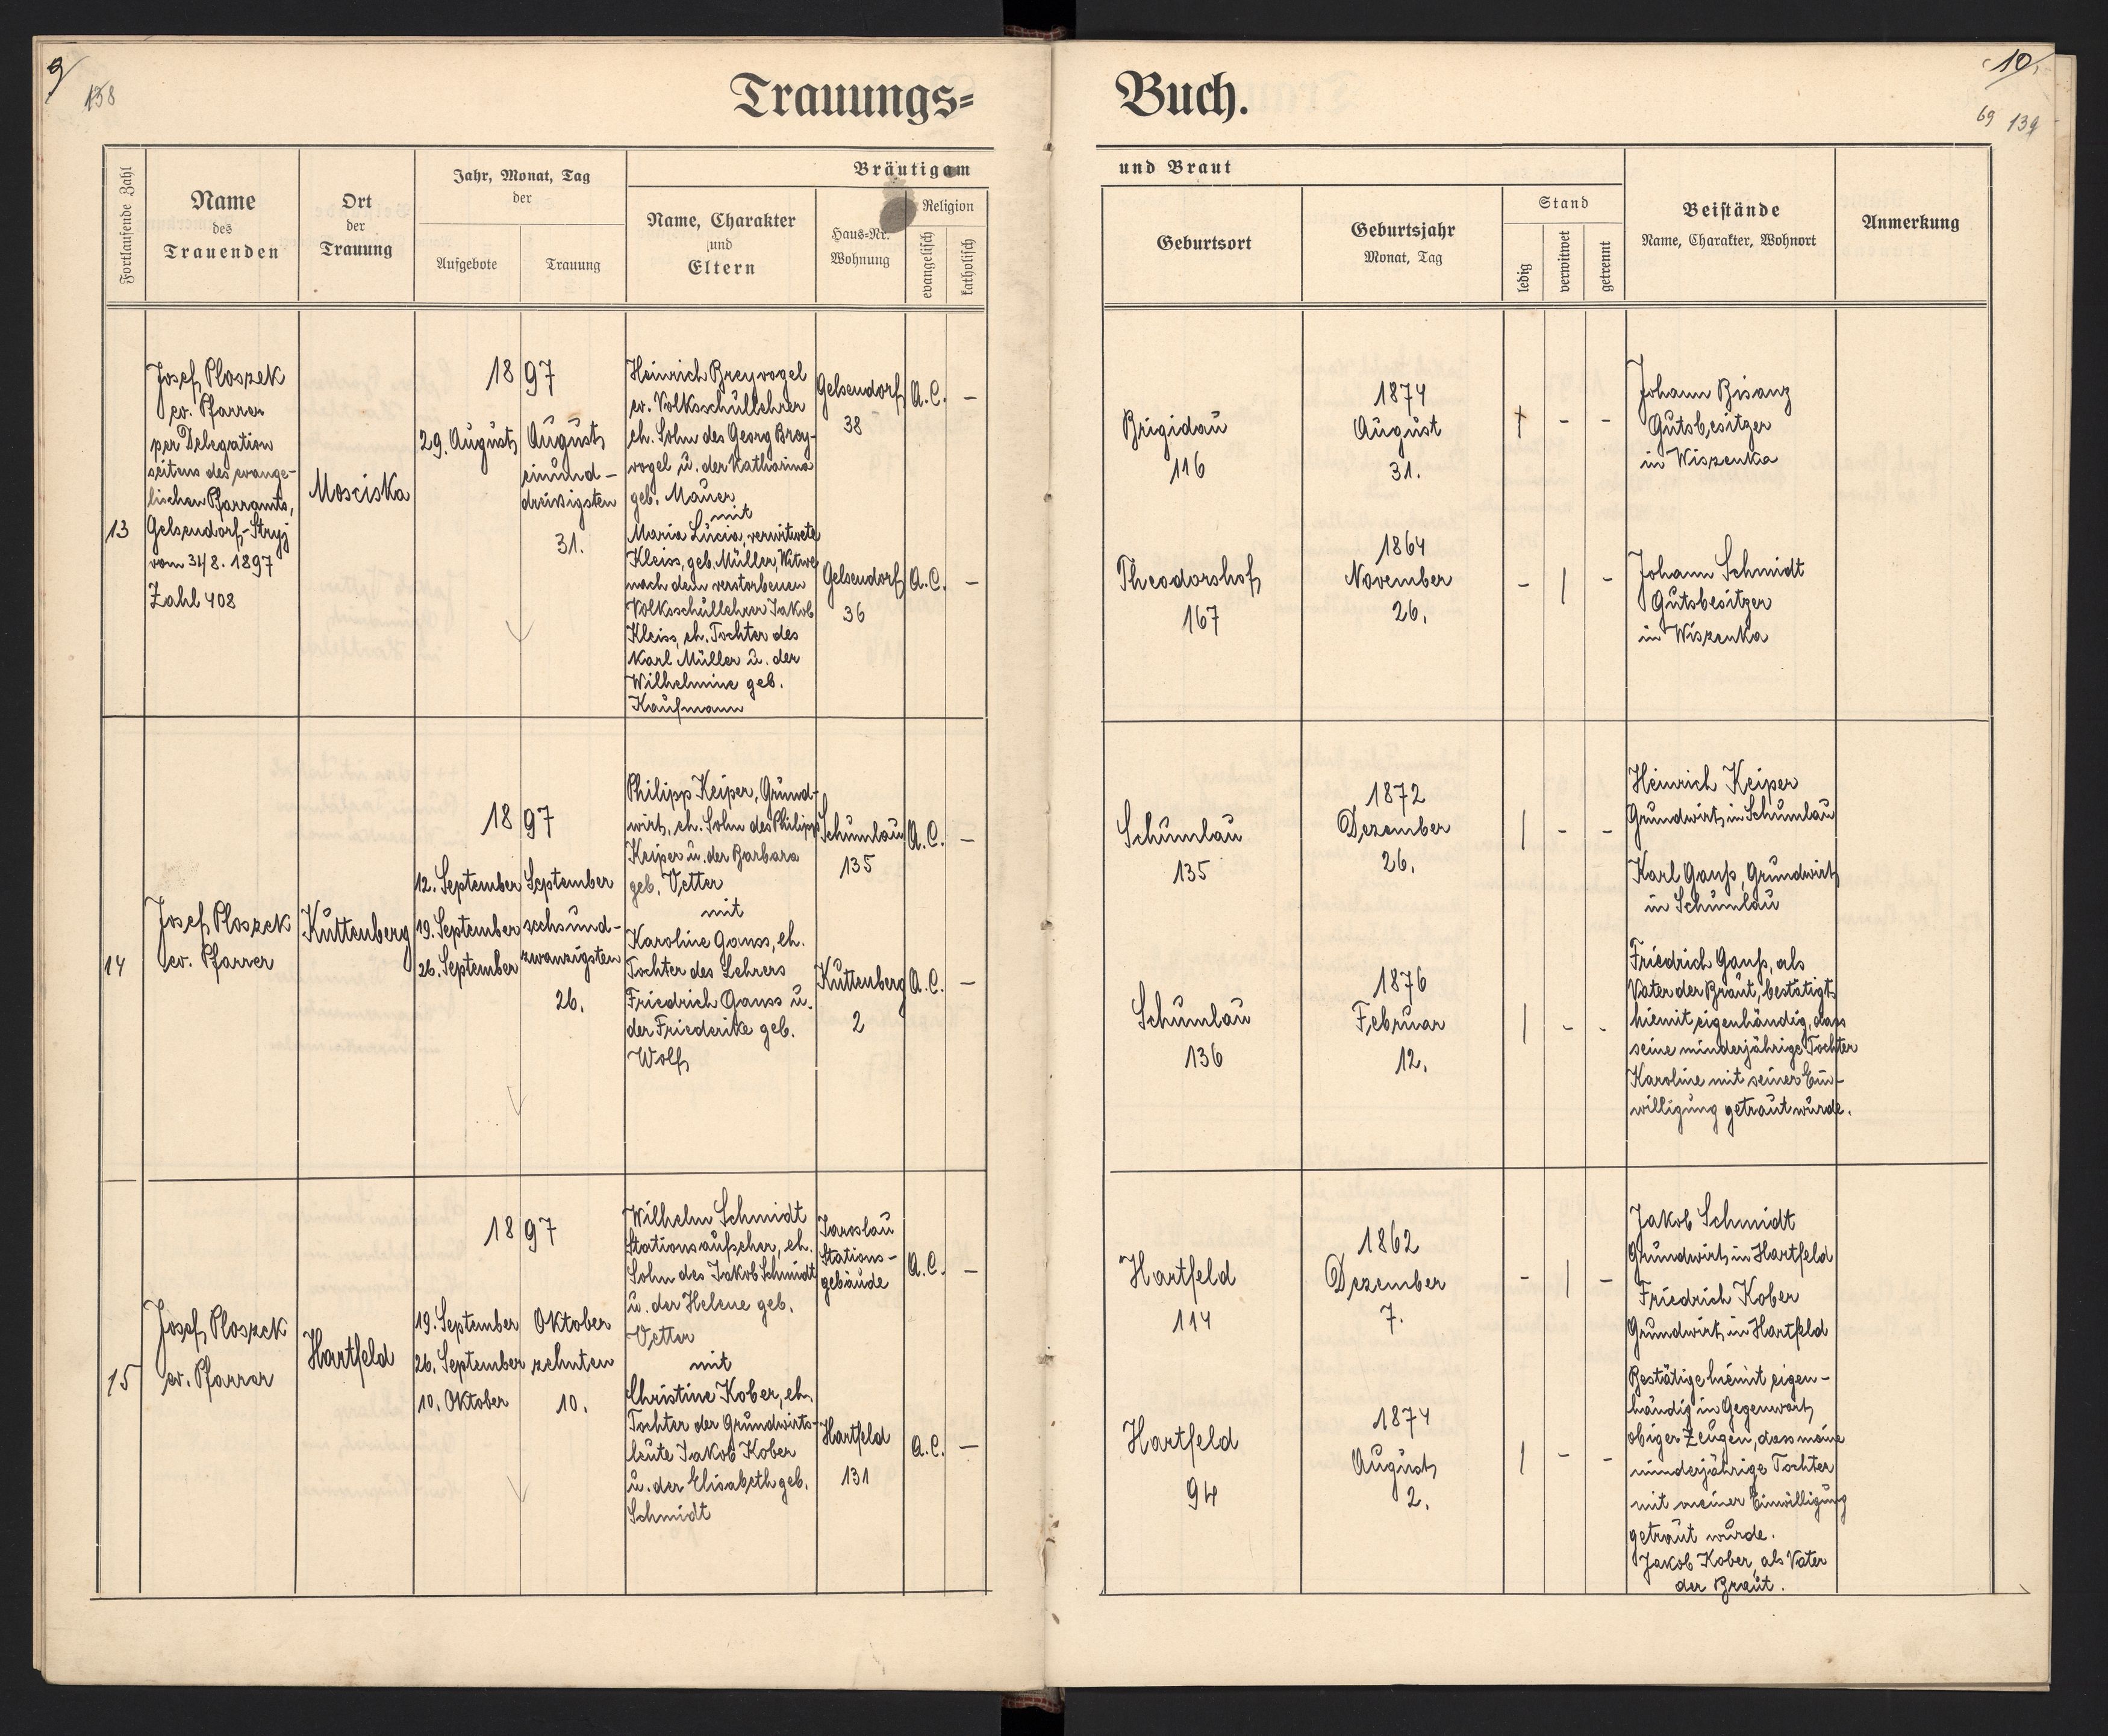 9
138
Trauungs=
Buch.
10
69 139
Fortlaufende Zahl
Name
des
Trauenden
Ort
der
Trauung
Jahr, Monat, Tag
der
Aufgebote
Trauung
Bräutigam
Name, Charakter
und
Eltern
Haus=Nr.
Wohnung
Religion
evangelisch
katholisch
und Braut
Geburtsort
Geburtsjahr
Monat, Tag
Stand
ledig
verwitwet
getrennt
Beistände
Name, Charakter, Wohnort
Anmerkung
13
Josef Ploszek
ev. Pfarrer
per Delegation
seitens des evange-
lischen Pfarramts,
Gelsendorf-Stryj
vom 31/8. 1897
Zahl 408
Mosciska
1897
29. August
August
einund-
dreissigsten
31.
Heinrich Breyvogel
ev. Volksschullehrer
eh. Sohn des Georg Brey-
vogel u. der Katharina
geb. Mauer
mit
Maria Lucia, verwitwete
Kleiss, geb. Müller, Witwe
nach dem verstorbenen
Volksschullehrer Jakob
Kleiss, eh. Tochter des
Karl Müller u. der
Wilhelmine geb.
Kaufmann
Gelsendorf
38
A.C. -
Gelsendorf
36
A.C. -
Brigidau
116
1874
August
31.
† - -
Theodorshof
167
1864
November
26.
- | -
Johann Bisanz
Gutsbesitzer
in Wiszenka
Johann Schmidt
Gutsbesitzer
in Wiszenka
14
Josef Ploszek
ev. Pfarrer
Kuttenberg
1897
12. September
19. September
26. September
September
sechsund-
zwanzigsten
26.
Philipp Keiper, Grund-
wirt, eh. Sohn des Philipp
Keiper u. der Barbara
geb. Vetter
mit
Karoline Gauss, eh.
Tochter des Lehrers
Friedrich Gauss u.
der Friederike geb.
Wolf
Schumlau
135
A.C. -
Kuttenberg
2
A.C. -
Schumlau
135
1872
Dezember
26.
| - -
Schumlau
136
1876
Februar
12.
| - -
Heinrich Keiper
Grundwirt in Schumlau
Karl Gauß, Grundwirt
in Schumlau
Friedrich Gauß, als
Vater der Braut, bestätigt
hiemit eigenhändig, dass
seine minderjährige Tochter
Karoline mit seiner Ein-
willigung getraut wurde.
15
Josef Ploszek
ev. Pfarrer
Hartfeld
1897
19. September
26. September
10. Oktober
Oktober
zehnten
10.
Wilhelm Schmidt
Stationsaufseher, eh.
Sohn des Jakob Schmidt
u. der Helene geb.
Vetter
mit
Christine Kober, eh.
Tochter der Grundwirts-
leute Jakob Kober
u. der Elisabeth geb.
Schmidt
Jaroslau
Stations-
gebäude
A.C. -
Hartfeld
131
A.C. -
Hartfeld
114
1862
Dezember
7.
- | -
Hartfeld
94
1874
August
2.
| - -
Jakob Schmidt
Grundwirt in Hartfeld
Friedrich Kober
Grundwirt in Hartfeld
Bestätige hiemit eigen-
händig in Gegenwart
obiger Zeugen, dass meine
minderjährige Tochter
mit meiner Einwilligung
getraut wurde.
Jakob Kober, als Vater
der Braut.